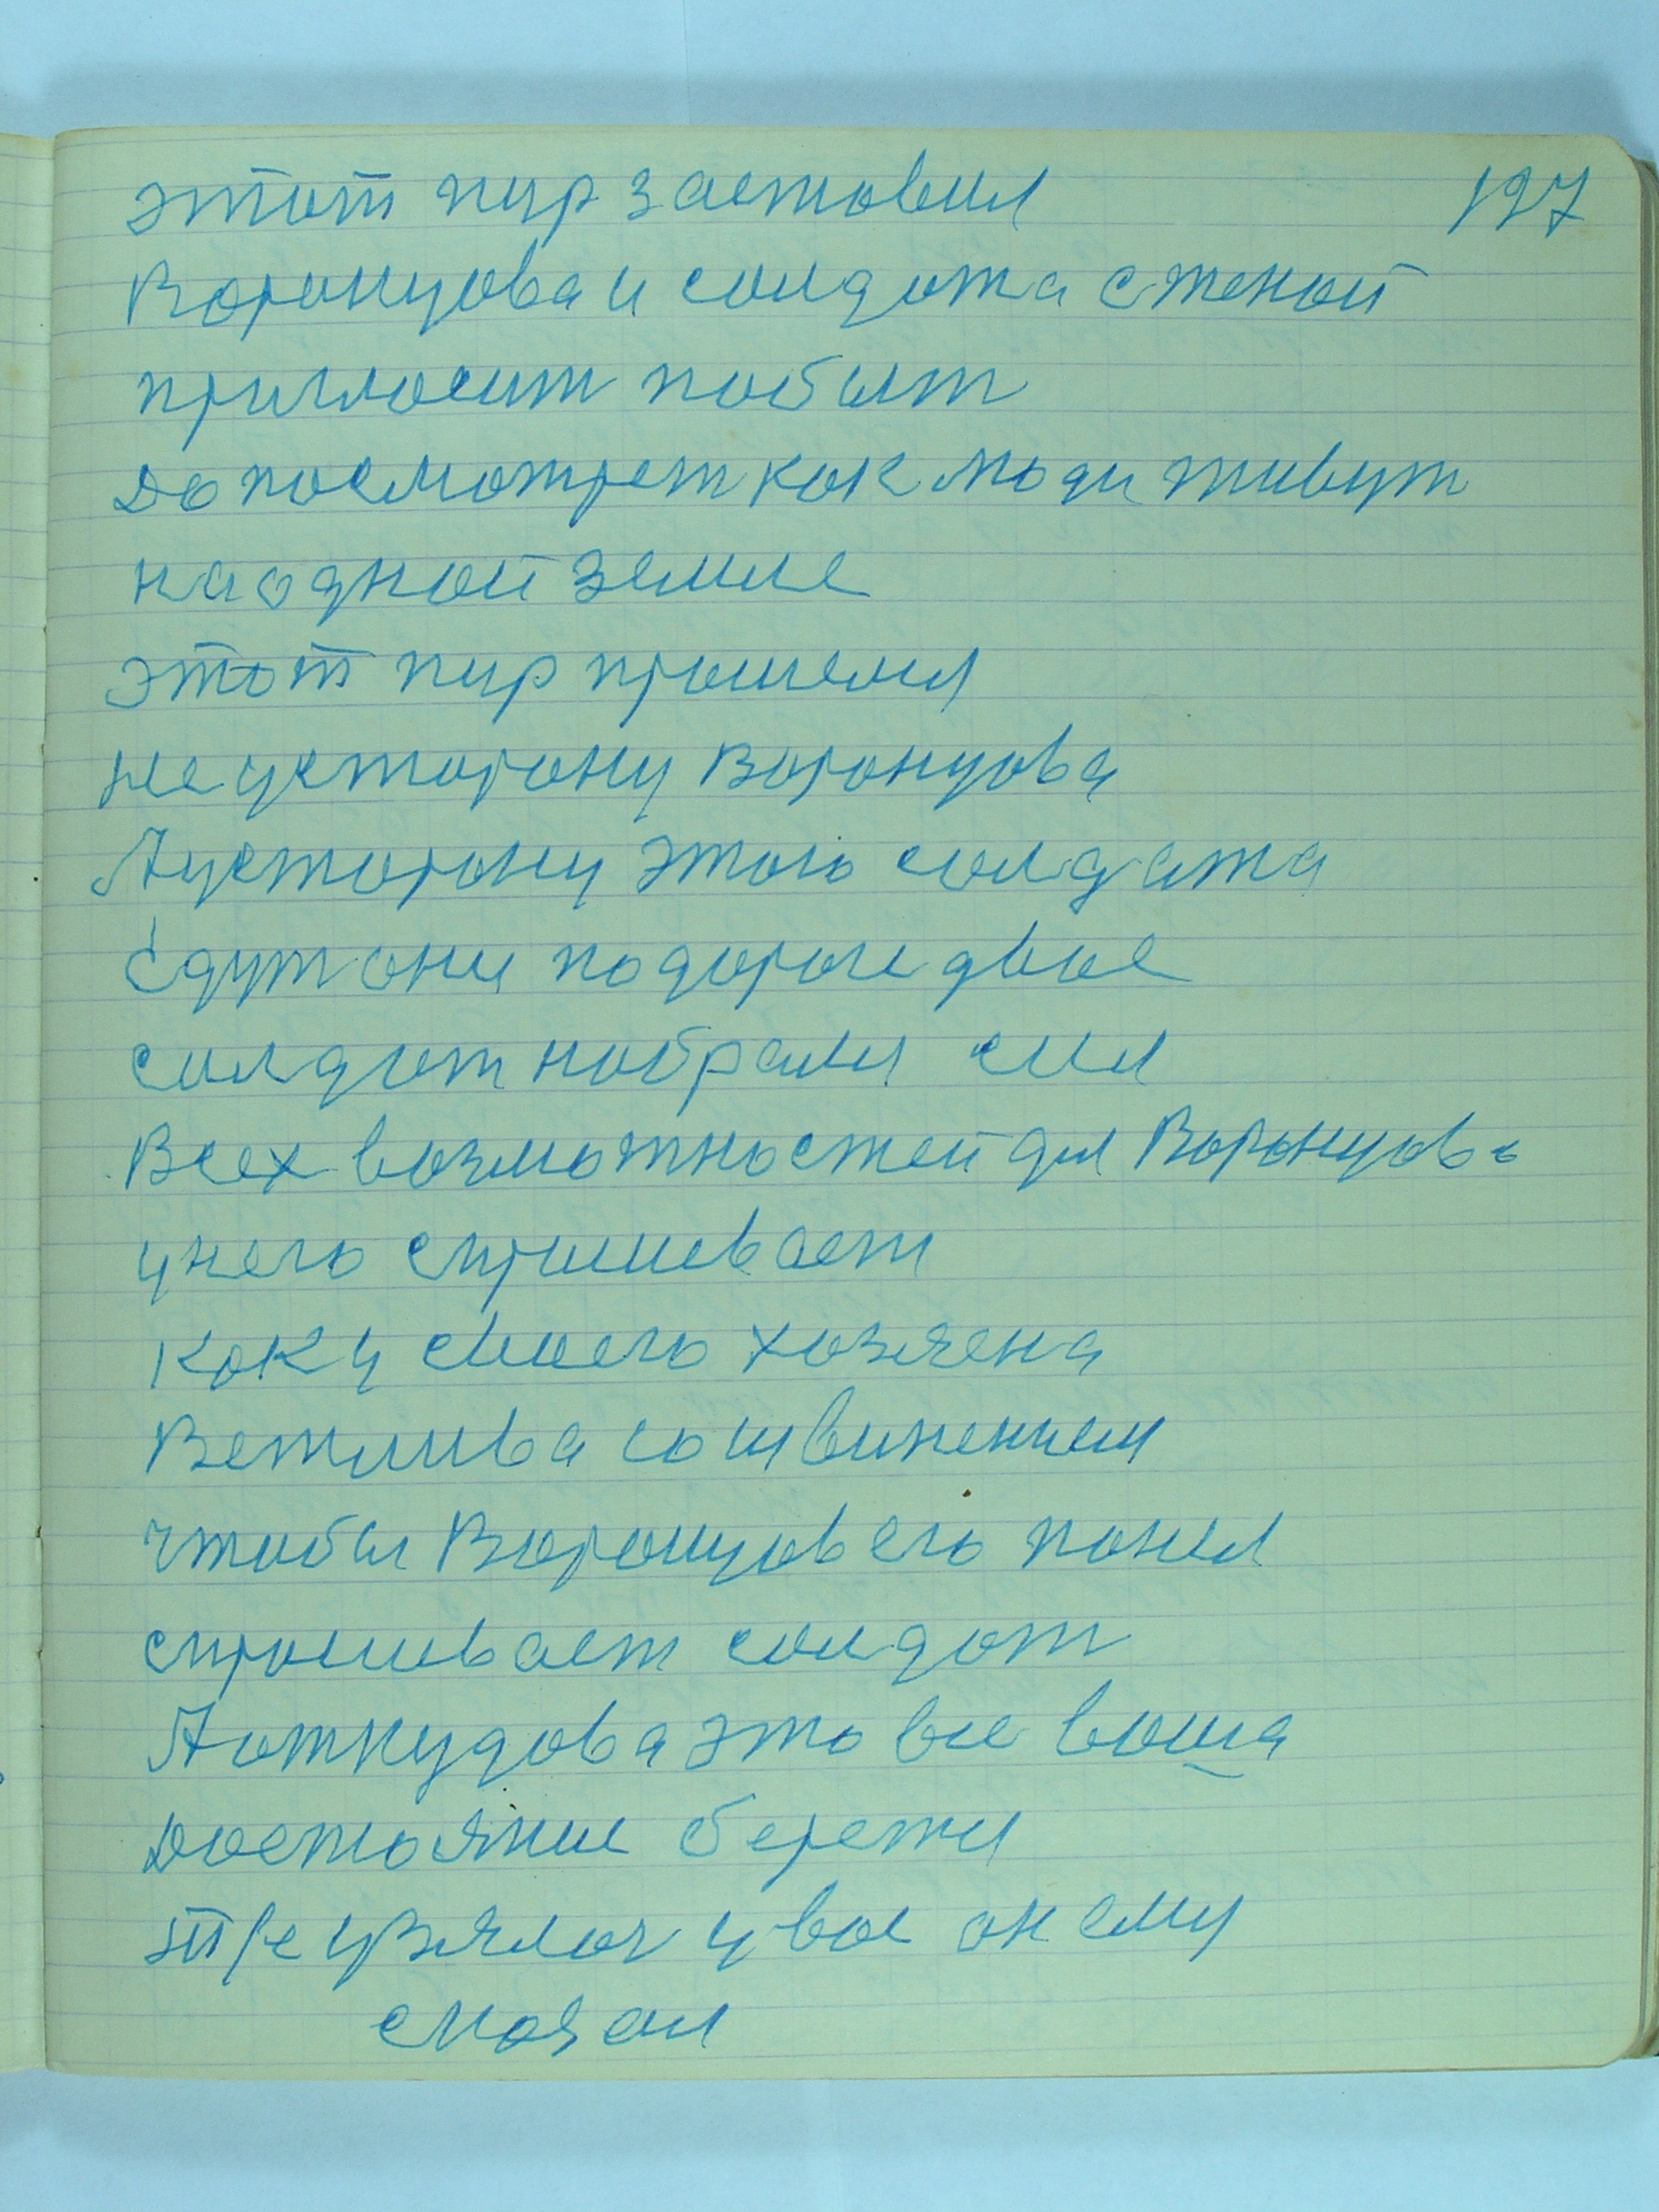 этот пир заставил 127
Воронцова и солдата с женой
пригласит побыт
да посмотрет как люди живут
на одной земле
этот пир прошел
не усторону Воронцова
А усторону этого солдата
Едут они по дороге двое
солдат набрался сил
Всех возможностей для Воронцова
у него спрашивает
как у своего хозяена
Вежлива со извинением
чтобы Воронцов его понел
спрашивает солдат
А откудова это все ваша
достояние бережи
взялас у вас он ему
сказал